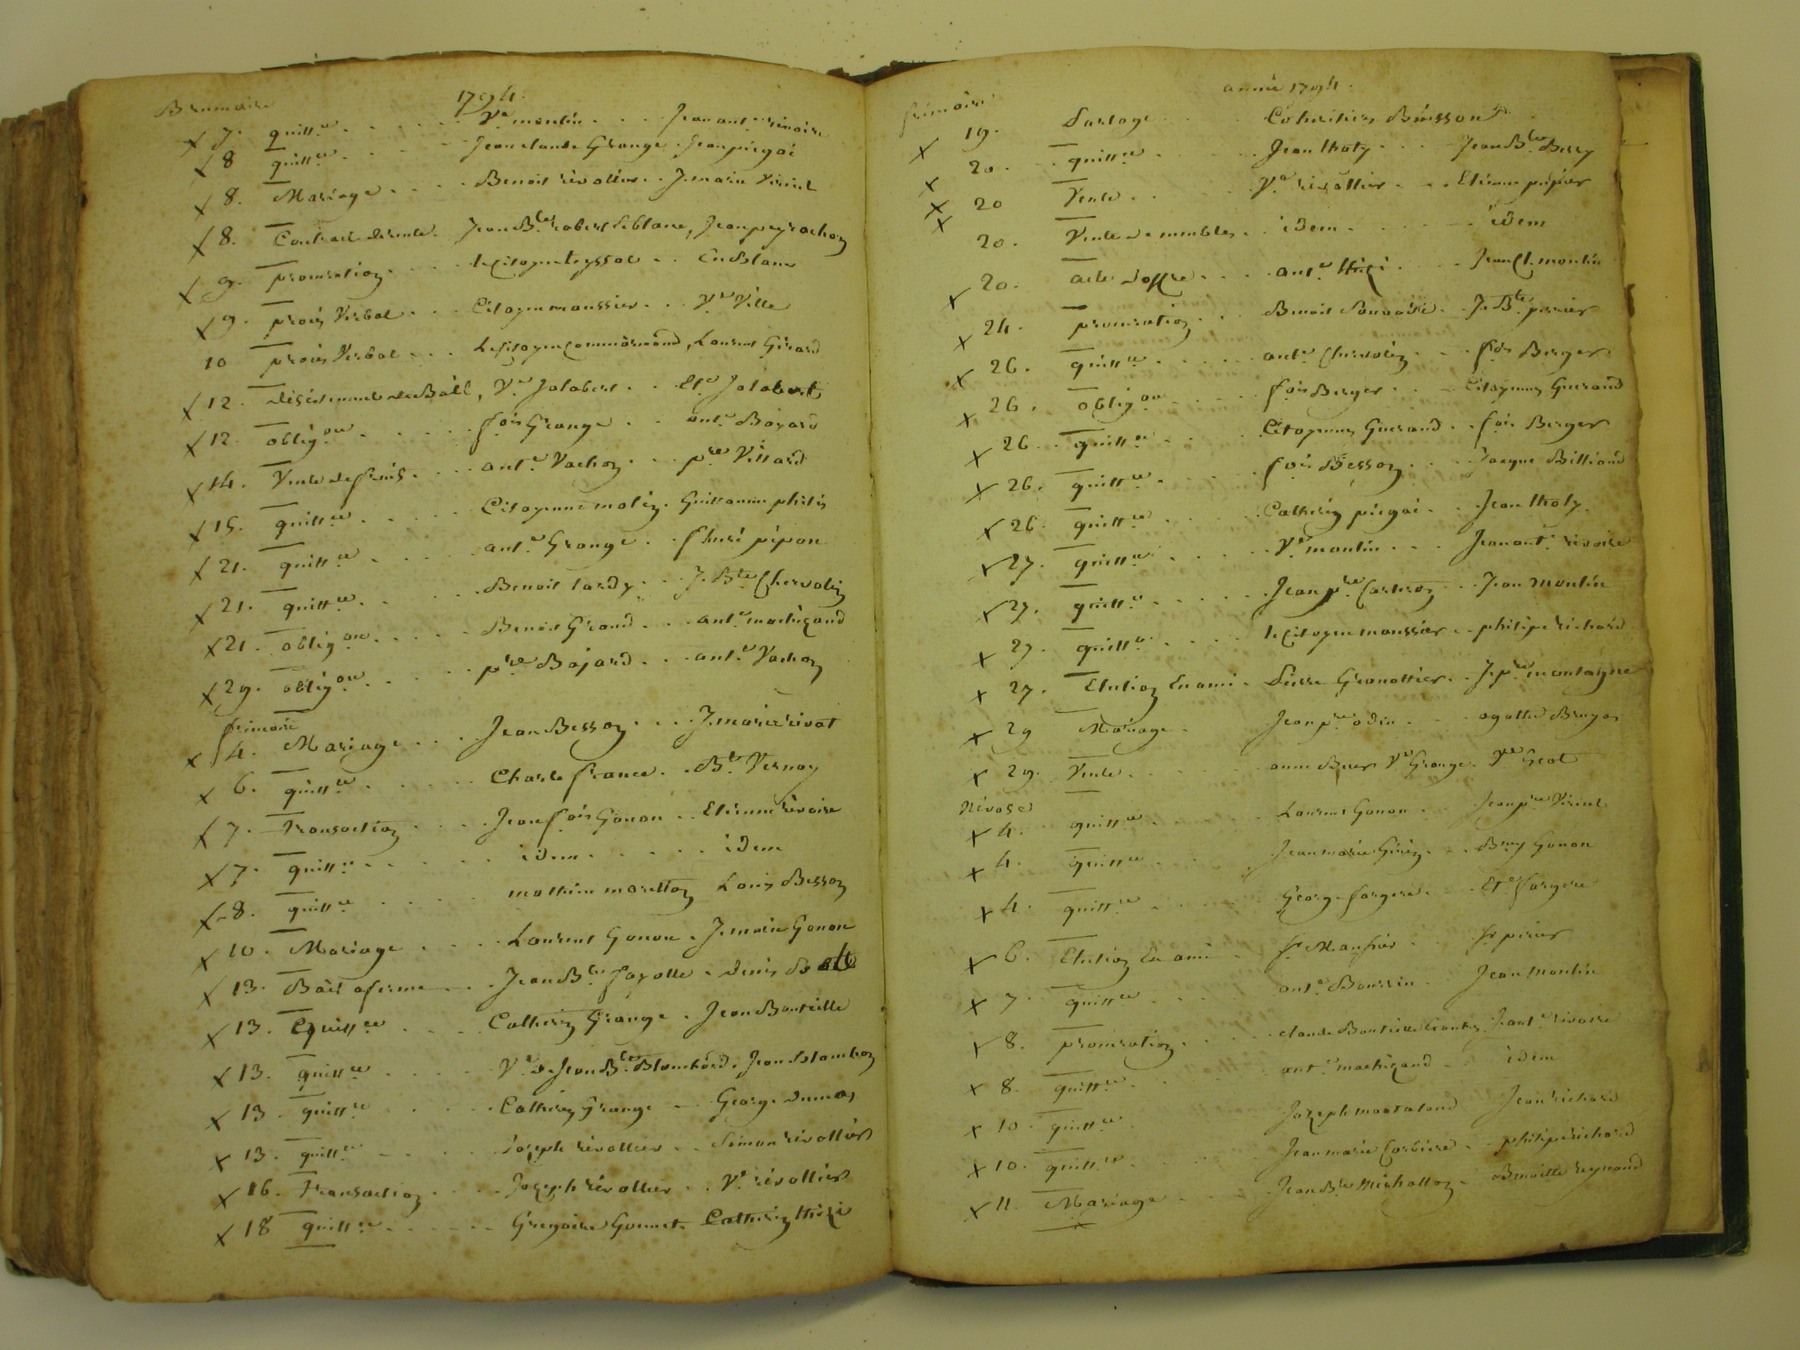 Brumaire 1794.
x 7. quitt.ce . . . . . . Ve moulin . . . . Jean ant.e rivoire
x 8 quitt.ce . . . . . Jean claude Grange . Jean piegai
x 8. Mariage . . . . . Benoit révolier . . J. marie Virieux
x 8. Contract de rente . Jean B.te robert Leblanc, Jean peyrachon
x 9. procuration . . . . le Citoyen teyssot . . C.n Blanc
x 9. procès Verbal . . . Citoyen maussier . . . Ve Ville
10 procès Verbal . . . Le Citoyen Commarmond, Laurent Girard
x 12. désistement de Bail, Ve Jalabert . . Et.e Jalabert
x 12. oblig.on . . . . . f.ois Grange . . ant.e Bayard
x 14. Vente de fruits . . . ant.e Vachon . . . p.re Villard
x 15. quitt.ce . . . . . Citoyenne matin . Guillaume philis
x 21. quitt.ce . . . . ant.e Grange . . fleuri pipon
x 21. quitt.ce . . . . . Benoit tardy . . . J. B.te Chervatin
x 21. oblig.on . . . . . Benoit Giraud . . . ant.e machizaud
x 29. oblig.on . . . . . p.re Bajard . . . ant.e Vachon
frimaire
x 4. Mariage . . . Jean Besson . . . . J. marie rivat
x 6. quitt.ce . . . . . Charle france . . B.te Vernay
x 7. Transaction . . . . Jean f.ois Gonon . . Etienne rivoire
x 7. quitt.ce . . . . . . idem . . . . . idem
x 8. quitt.ce . . . . . mathieu maretton Louis Besson
x 10. Mariage . . . . . Laurent Gonon . J. marie Gonon
x 13. Bail a ferme . . . Jean B.te fayolle . denis
x 13. quitt.ce . . . . Catherin Grange . Jean Bouteille
x 13. quitt.ce . . . . . Ve de Jean B.te Blanchard . Jean
x 13. quitt.ce . . . . . Catherin Grange . . . George dumas
x 13. quitt.ce . . . . . Joseph révollier . . Simon révollier
x 16. Transaction . . . . Joseph révollier . . Ve révollier
x 18 quitt.ce . . . . . . Grégoire Gonnet . Catherin
frimaire année 1794.
x 19. Partage . . . . Cohéritiers Buisson
x 20. quitt.ce . . . . Jean thoty . . . . Jean B.te Berry
x 20 Vente . . . . Ve révollier . . . Etienne pupier
x 20. Vente de meubles . . idem . . . . . . idem
x 20. acte d'offre . . . . ant.e . . . . Jean Cl. moulin
x 24. procuration . . . Benoit . . J. B.te perrier
x 26. quitt.ce . . . . . ant.e Chervatin . . . f.ois Berger
x 26. oblig.on . . . . . f.ois Berger . . . Citoyenne Gueraud
x 26. quitt.ce . . . . Citoyenne Gueraud . . f.ois Berger
x 26. quitt.ce . . . . f.ois Besson . . . Jacque Billiaud
x 26. quitt.ce . . . . Catherin piegai . . Jean thoty
x 27. quitt.ce . . . . . Ve moulin . . . Jean ant.e rivoire
x 27. quitt.ce . . . . . Jean p.re . . . Jean moulin
x 27. quitt.ce . . . . le Citoyen maussier . . philipe richard
x 27. Election En ami . . Granottier . . J. p.re montagne
x 29 Mariage . Jean p.re odin . . . . agathe Bruyas
x 29. Vente . . . . . anne Ve Grange . Ve
Nivose
x 4. quitt.ce . . . . Laurent Gonon . . . Jean p.re Virieux
x 4. quitt.ce . . . Jean marie . . . B.my Gonon
x 4. quitt.ce . . . . George fargere . . . Et.e fargere
x 6. Election En ami . . . . perier
x 7. quitt.ce . . . . ant.e Boursin . . . Jean moulin
x 8. procuration . . . . claude . J. ant.e rivoire
x 8. quitt.ce . . . . ant.e machizaud . . idem
x 10. quitt.ce . . . . Jozeph Jean richard
x 10. quitt.ce . . . . . Jean marie Corbiere . . philipe richard
x 11. Mariage . . . . Jean B.te Michallon . Benoitte reynaud